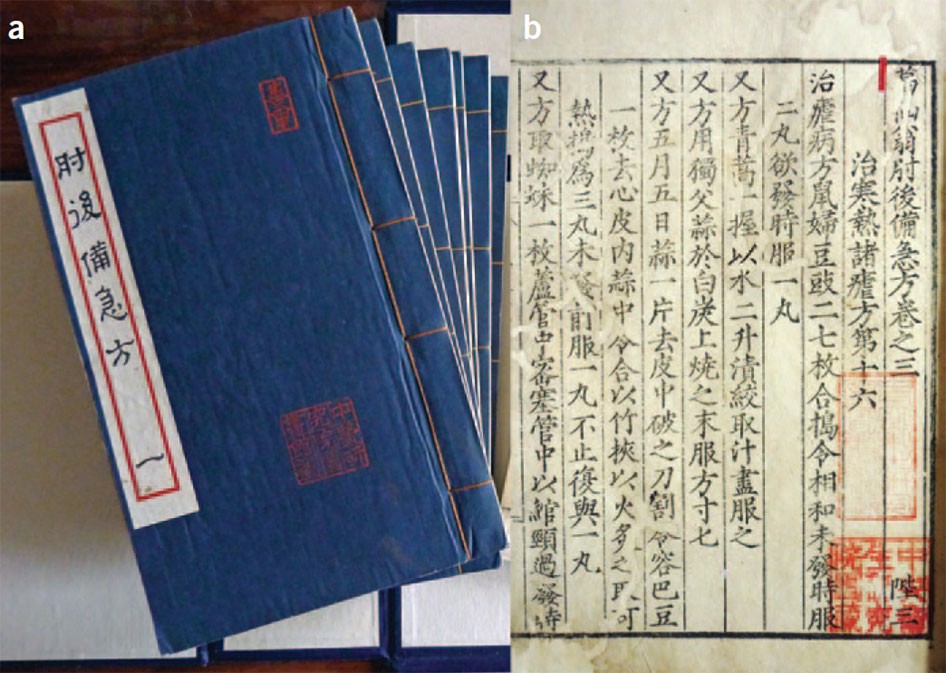 a
肘後備急方 一
b
葛仙翁肘後備急方卷之三 陛三
治寒熱諸瘧方第十六
治瘧病方鼠婦豆豉二七枚合搗令相和未發時服
二丸欲發時服一丸
又方青蒿一握以水二升漬絞取汁盡服之
又方用獨父蒜於白炭上燒之末服方寸七
又方五月五日蒜一片去皮中破之刀割令容巴豆
一枚去心皮內蒜中令合以竹挾以火炙之取可
熱搗爲三丸未發前服一丸不止復與一丸
又方取蜘蛛一枚蘆管中密塞管中以綰頸過發時